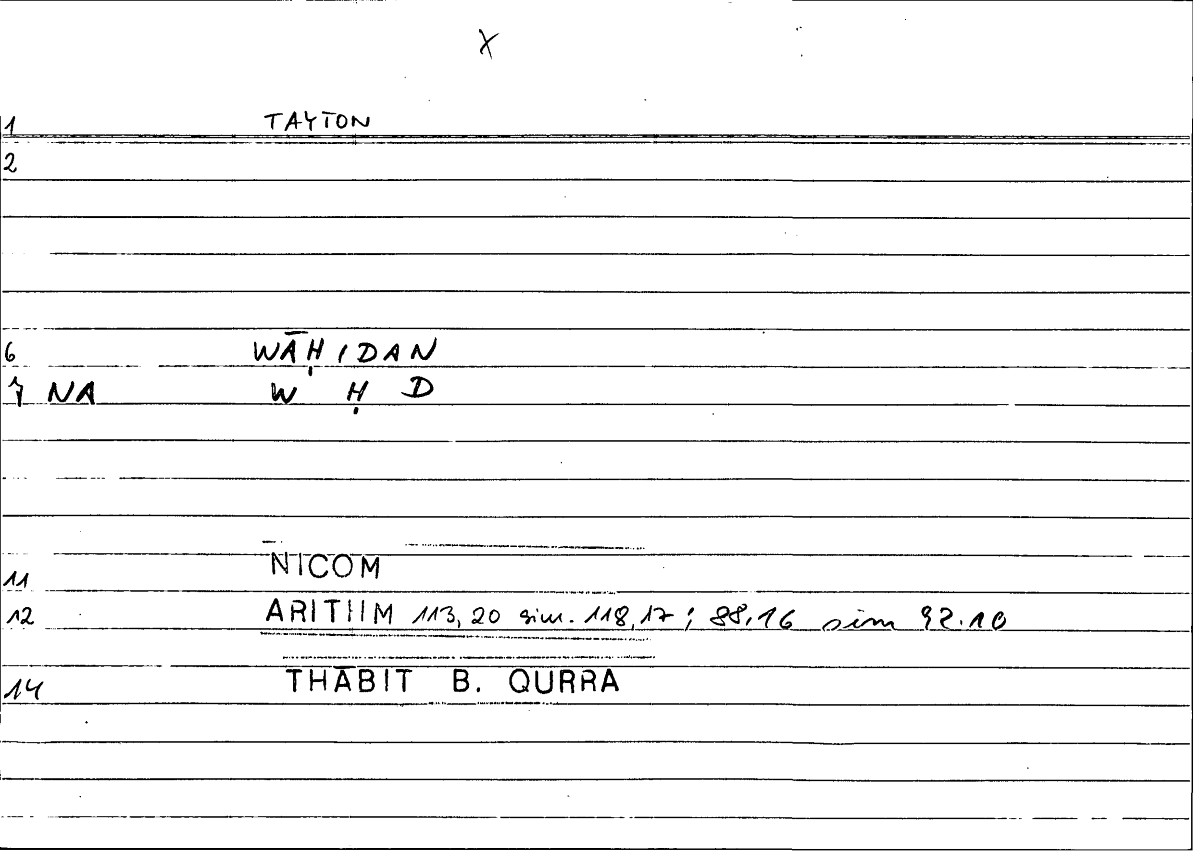 X
1 TAYTON
2
6 WĀḤIDAN
7 NA W Ḥ D
11 NICOM
12 ARITIIM 113,20 sim. 118,17; 88.16 sim 92.10
14 THĀBIT B. QURRA